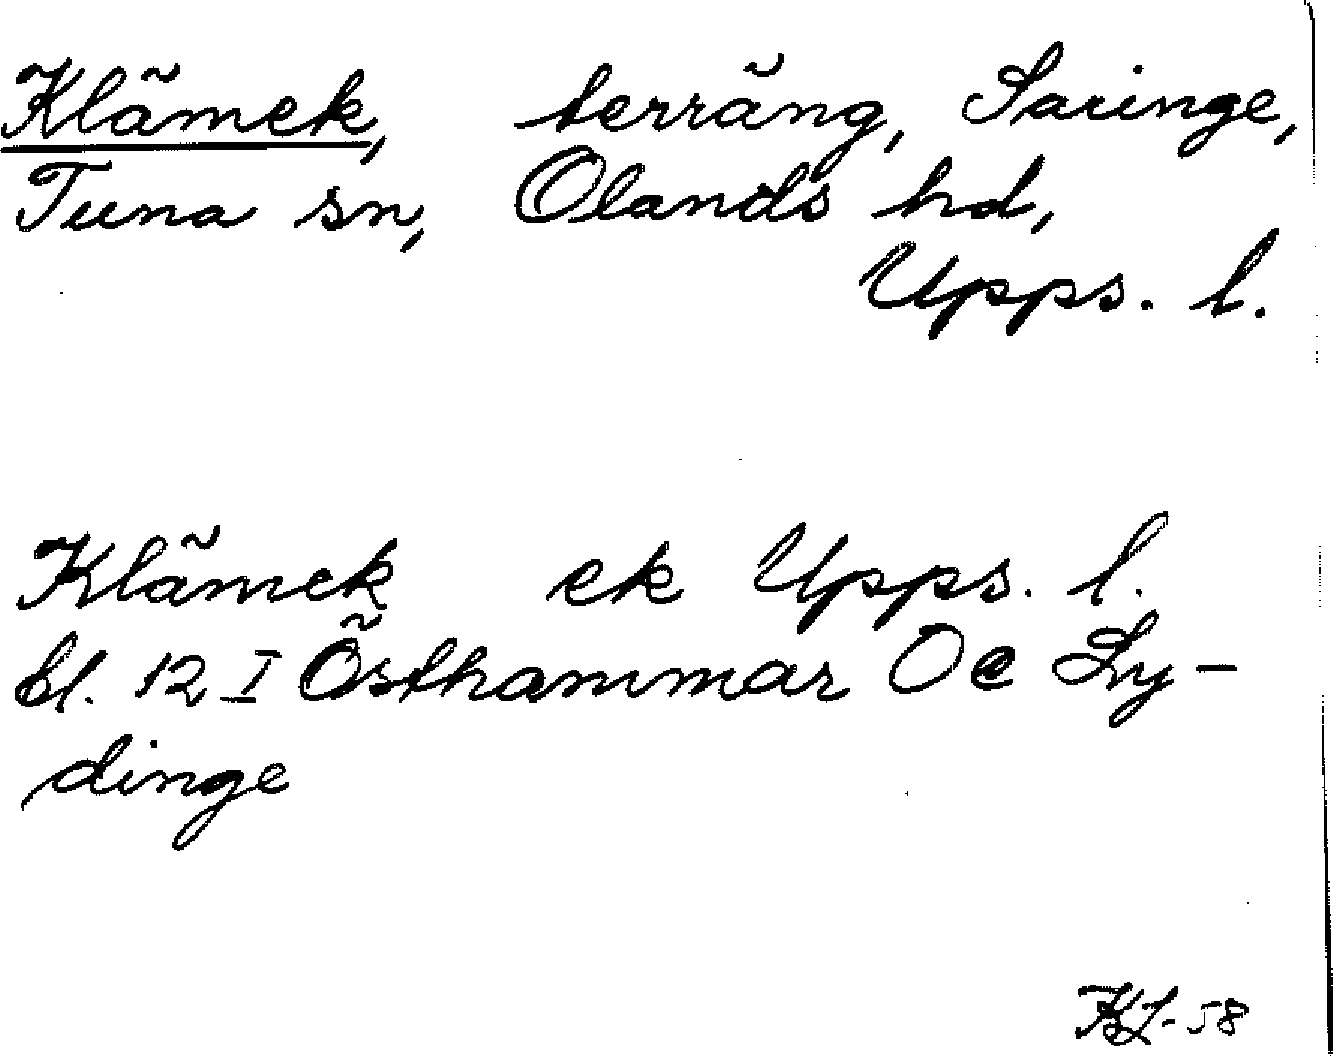 Klämek, terräng, Saringe,
Tuna sn, Olands hd,
Upps. l.
Klämek ek Upps. l.
bl. 12 I Östhammar Oe Ly-
dinge
KL-58